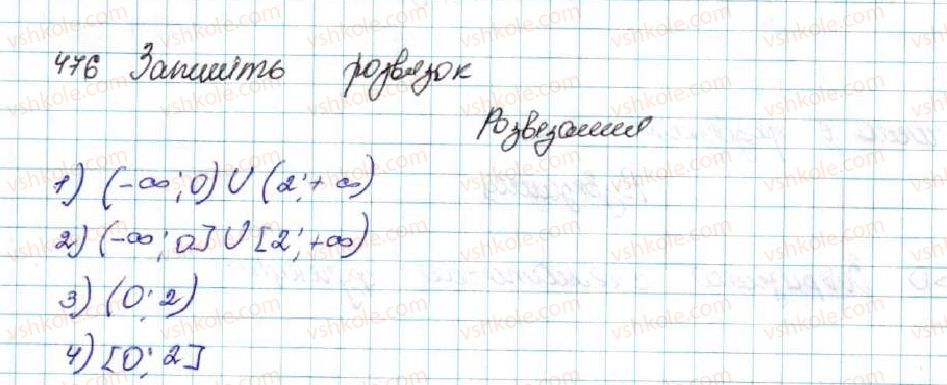 476 Запишіть розвязок
Розвезання
1) (-∞; 0) U (2; +∞)
2) (-∞; 0] U [2; +∞)
3) (0; 2)
4) [0; 2]
vshkole.com